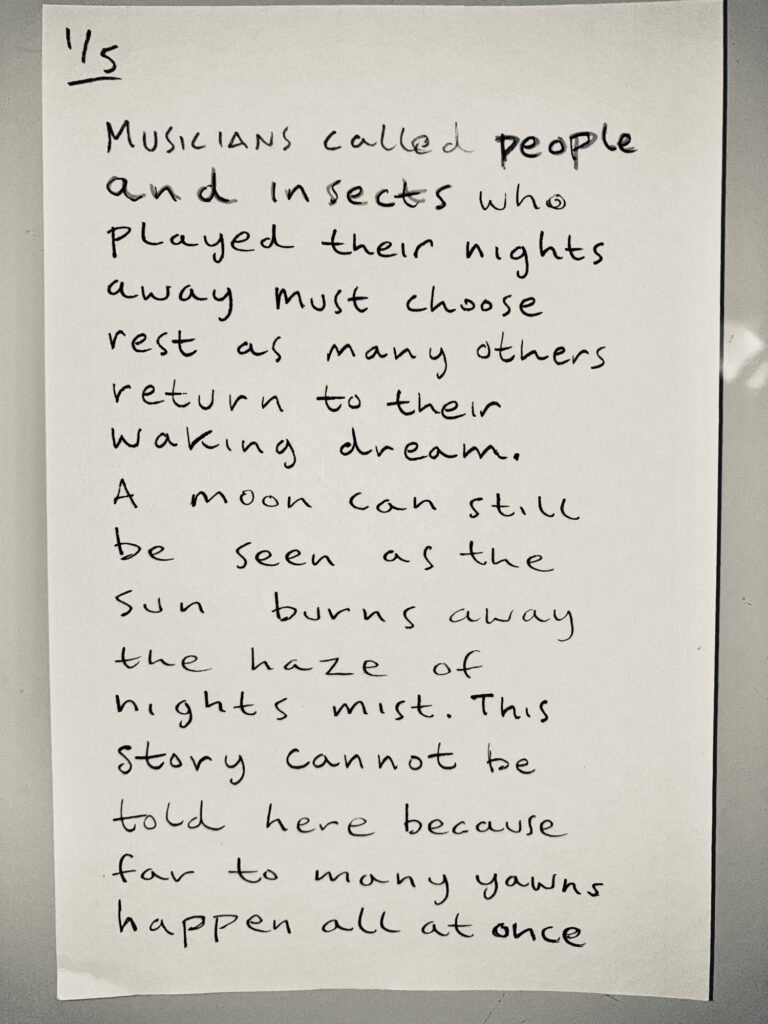 1/5
MUSICIANS called people
and insects who
played their nights
away must choose
rest as many others
return to their
waking dream.
A moon can still
be seen as the
sun burns away
the haze of
nights mist. This
story cannot be
told here because
far to many yawns
happen all at once